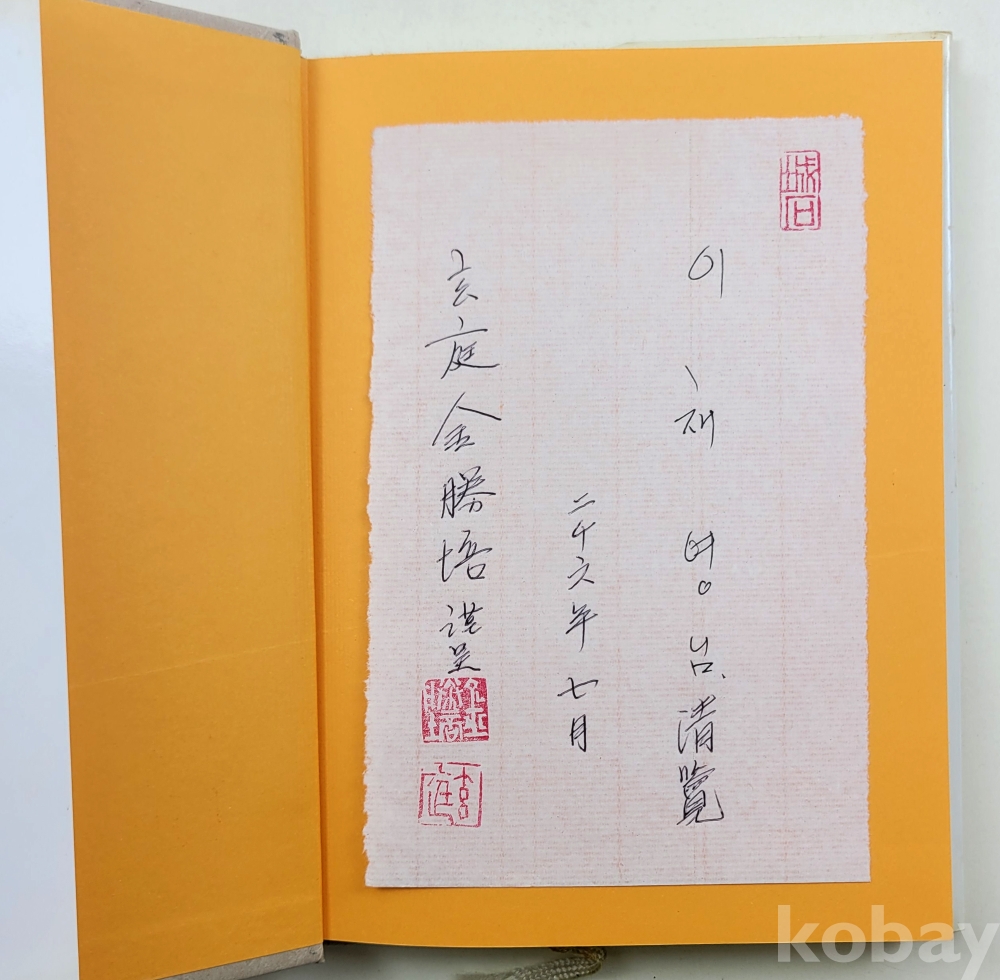 이재영 님 清覽
二千六年七月
玄庭 金勝 謹呈